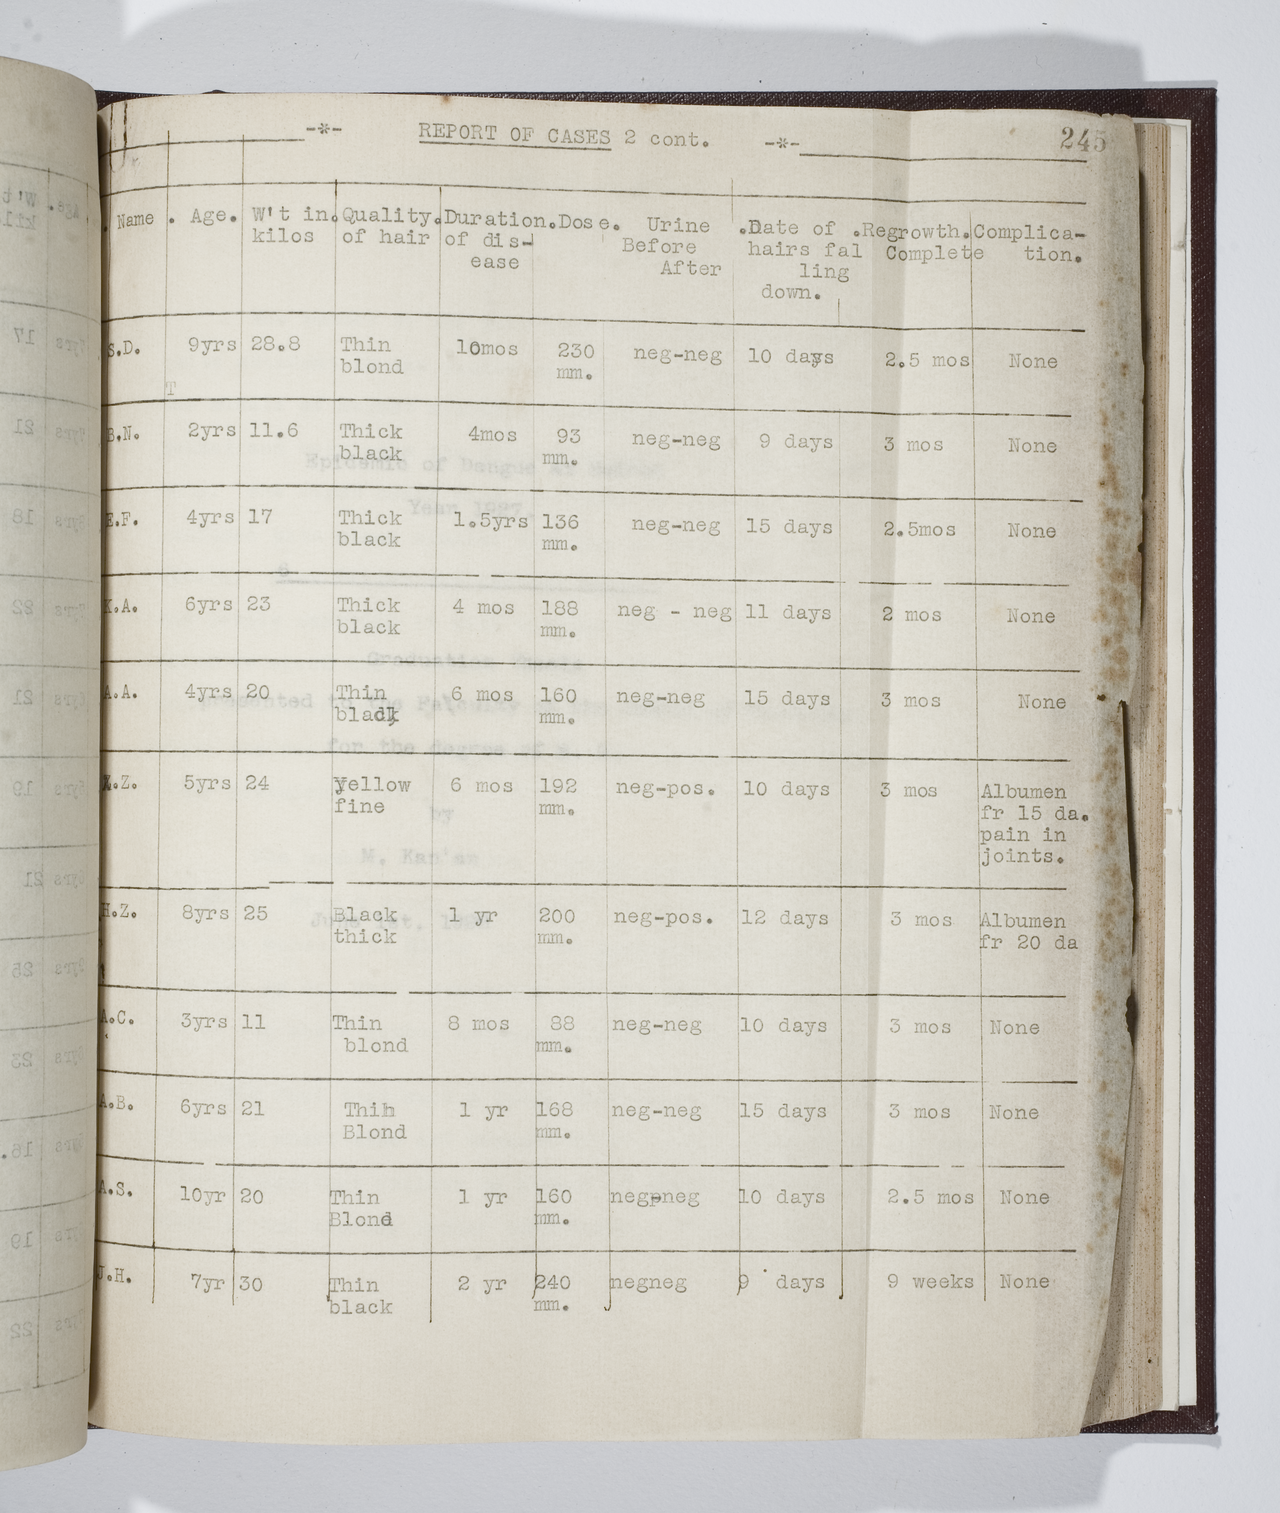 -*- REPORT OF CASES 2 cont. -*- 245
Name . Age. W't in. Quality. Duration. Dose. Urine .Date of .Regrowth. Complica-
kilos of hair of dis- Before hairs fal Complete tion.
ease After ling
down.
S.D. 9yrs 28.8 Thin 10mos 230 neg-neg 10 days 2.5 mos None
blond mm.
T
B.N. 2yrs 11.6 Thick 4mos 93 neg-neg 9 days 3 mos None
black mm.
E.F. 4yrs 17 Thick 1.5yrs 136 neg-neg 15 days 2.5mos None
black mm.
K.A. 6yrs 23 Thick 4 mos 188 neg - neg 11 days 2 mos None
black mm.
A.A. 4yrs 20 Thin 6 mos 160 neg-neg 15 days 3 mos None
black mm.
.Z. 5yrs 24 yellow 6 mos 192 neg-pos. 10 days 3 mos Albumen
fine mm. fr 15 da.
pain in
joints.
H.Z. 8yrs 25 Black 1 yr 200 neg-pos. 12 days 3 mos Albumen
thick mm. fr 20 da
A.C. 3yrs 11 Thin 8 mos 88 neg-neg 10 days 3 mos None
blond mm.
A.B. 6yrs 21 Thin 1 yr 168 neg-neg 15 days 3 mos None
Blond mm.
A.S. 10yr 20 Thin 1 yr 160 neg-neg 10 days 2.5 mos None
Blond mm.
J.H. 7yr 30 Thin 2 yr 240 negneg 9 days 9 weeks None
black mm.